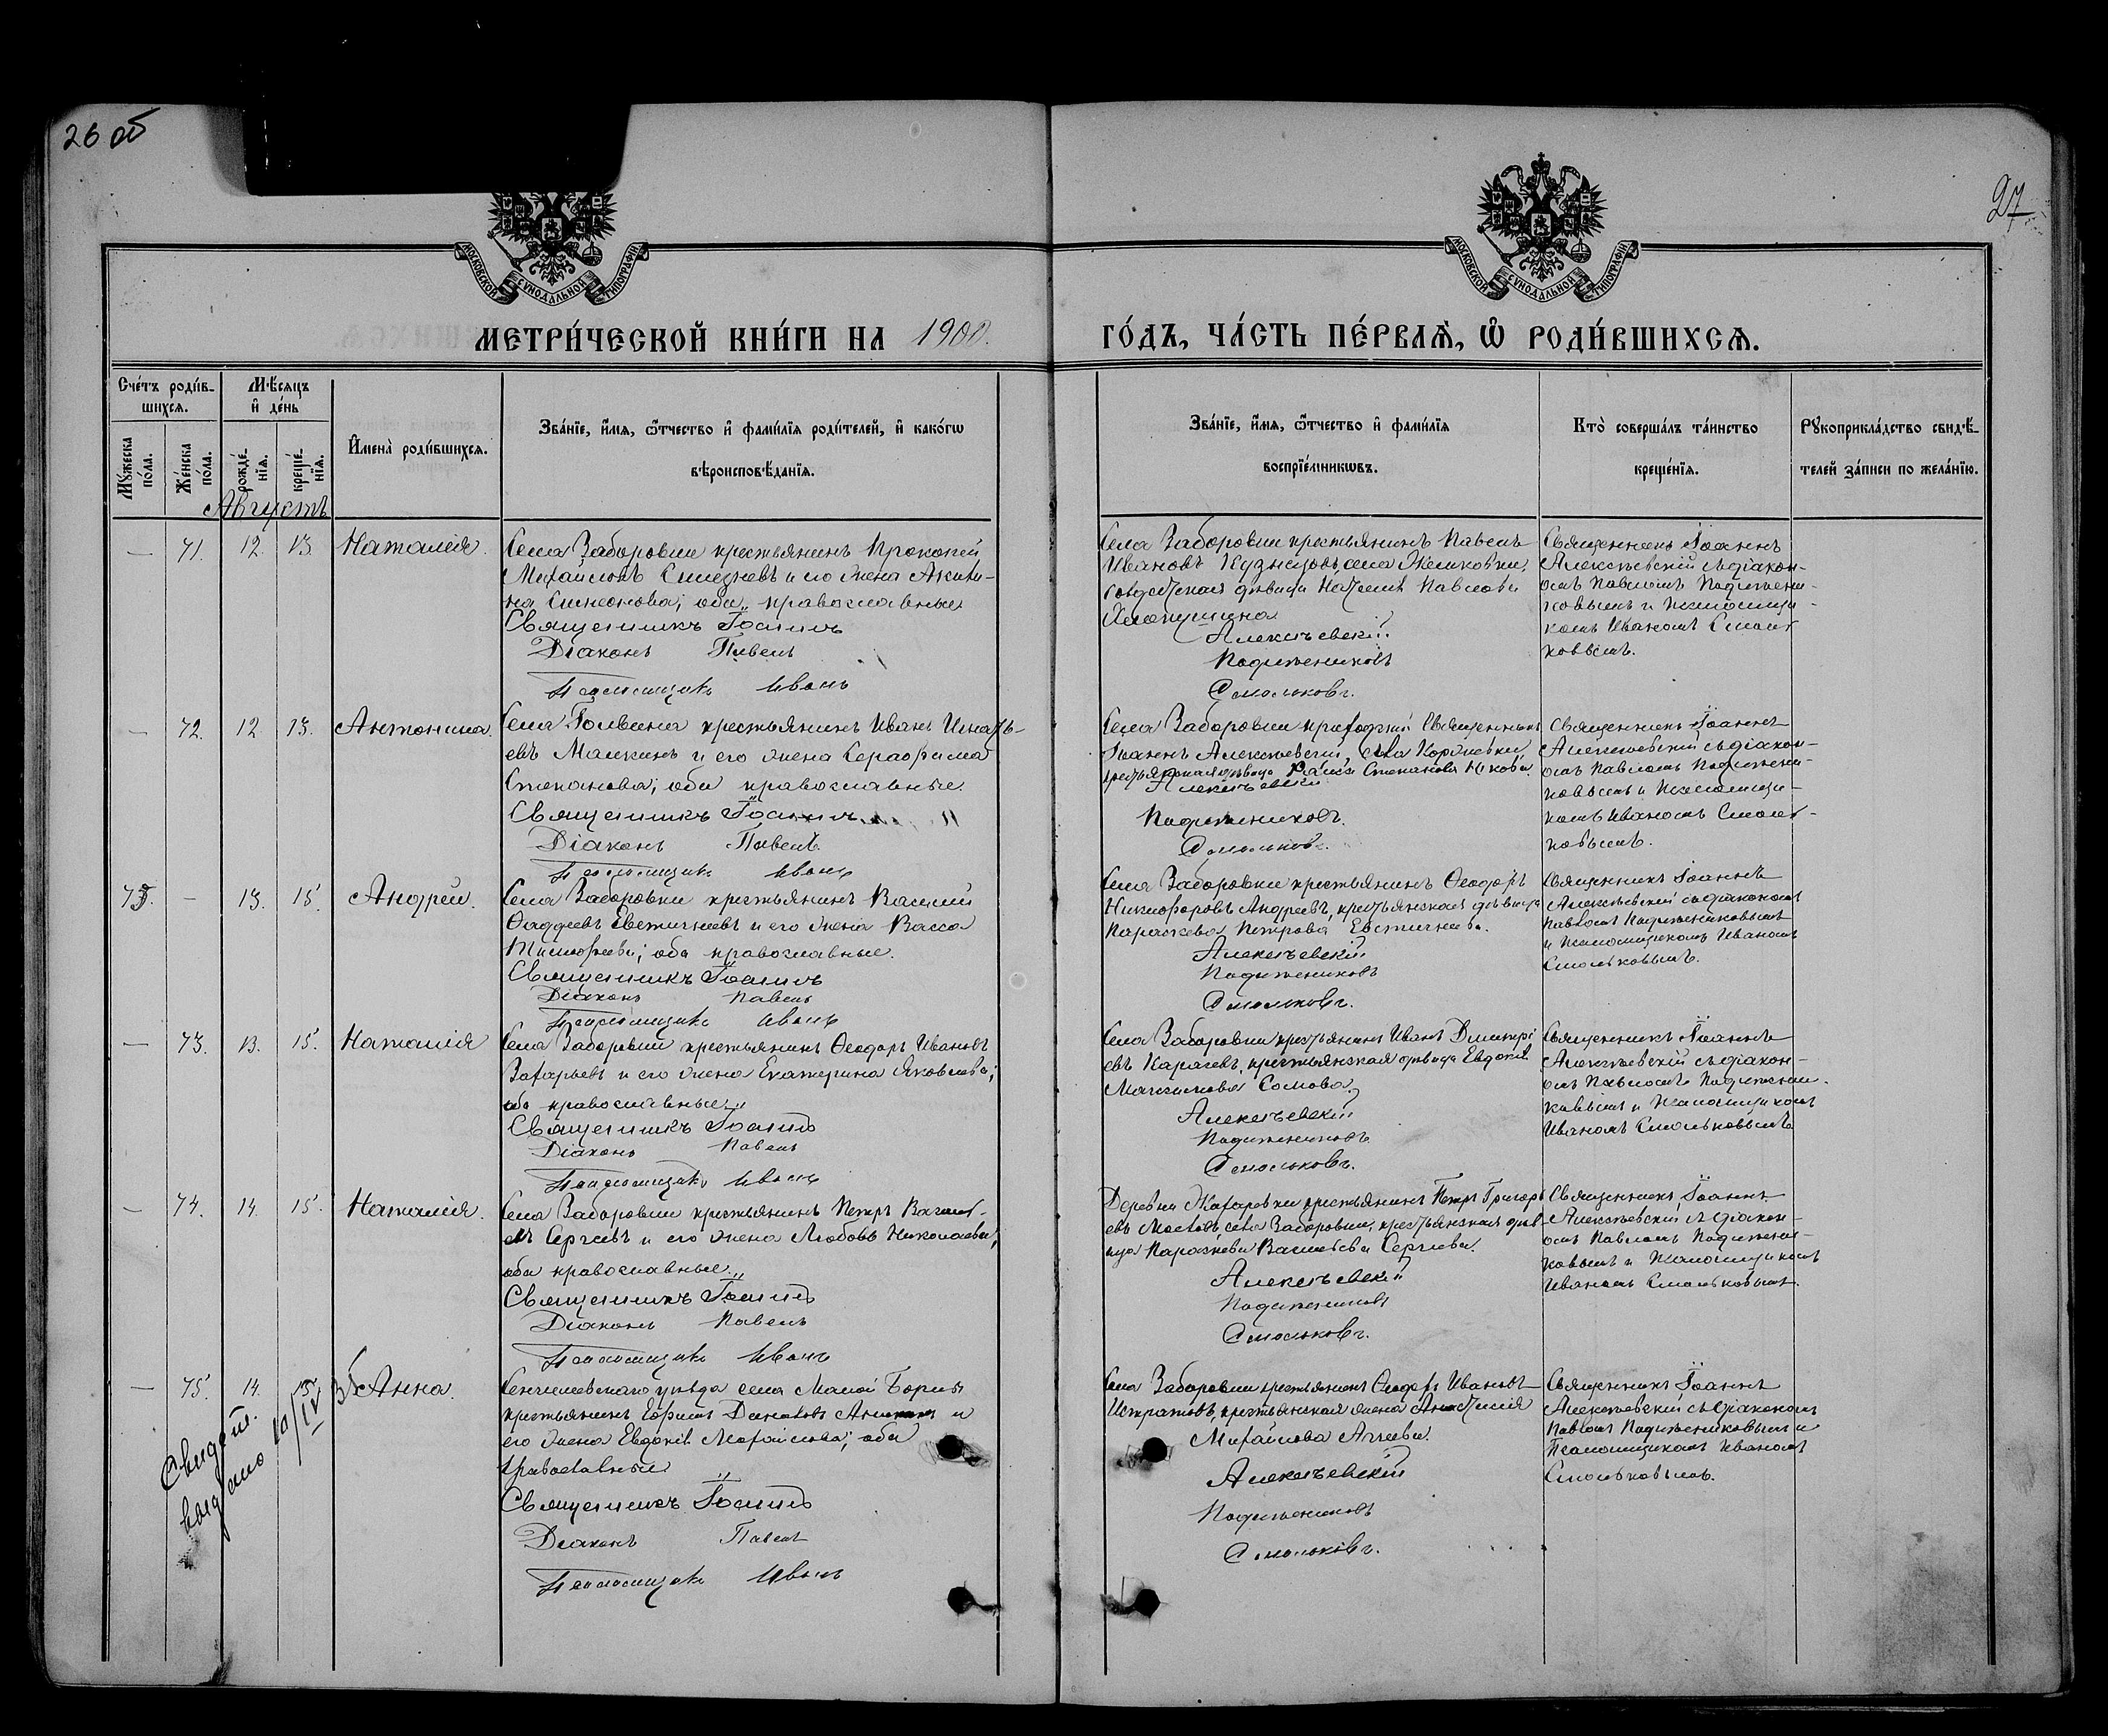 26 об
27
МОСКОВСКОЙ СѴНОДАЛЬНОЙ ТИПОГРАФІИ
МОСКОВСКОЙ СѴНОДАЛЬНОЙ ТИПОГРАФІИ
МЕТРИ́ЧЕСКОЙ КНИ́ГИ НА 1900. ГО́ДЪ, ЧА́СТЬ ПЕ́РВАѦ, Ѡ РОДИ́ВШИХСѦ.
Сче́тъ роди́в-
шихсѧ.
Мѣ́сѧцъ
и҆ де́нь
Мꙋжеска
по́ла.
Же́нска
по́ла.
рожде́-
нїѧ.
креще́-
нїѧ.
И҆мена̀ роди́вшихсѧ.
Зва́нїе, и҆́мѧ, ѻ҆́тчество и҆ фами́лїѧ роди́телей, и҆ како́гѡ
вѣроисповѣ́данїѧ.
Зва́нїе, и҆́мѧ, ѻ҆́тчество и҆ фами́лїѧ
воспрїе́мникѡвъ.
Кто̀ соверша́лъ та́инство
креще́нїѧ.
Рꙋкоприкла́дство свидѣ́-
телей за́писи по жела́нїю.
Августъ
— 71. 12. 13. Наталія.
Села Заборовки крестьянинъ Прокопій
Михайловъ Селезневъ и его жена Акили-
на Симеонова; оба православные
Священникъ Іоаннъ
Діаконъ Павелъ
Псаломщикъ Иванъ
Села Заборовки крестьянинъ Павелъ
Ивановъ Кузнецовъ, села
дѣвица Павлова
Алексѣевскій
Подъячениковъ
Смольковъ.
Священникъ Іоаннъ
Алексѣевскій съ діакон-
омъ Павломъ
и псаломщи-
комъ Иваномъ Смоль-
ковымъ.
— 72. 12 13. Антонина.
Села Голвина крестьянинъ Иванъ Игнать-
евъ Малкинъ и его жена Серафима
Степанова; оба православные.
Священникъ Іоаннъ
Діаконъ Павелъ
Псаломщикъ Иванъ
Села Заборовки приходскій Священникъ
Іоаннъ Алексѣевскій, села
крестьянская дѣвица Степанова
Алексѣевскій
Смольковъ.
Священникъ Іоаннъ
Алексѣевскій съ діакон-
омъ Павломъ
и псаломщи-
комъ Иваномъ Смоль-
ковымъ.
73. — 13. 15. Андрей.
Села Заборовки крестьянинъ Василій
Фаддеевъ Евстигнеевъ и его жена Васса
Тимофеева; оба православные.
Священникъ Іоаннъ
Діаконъ Павелъ
Псаломщикъ Иванъ
Села Заборовки крестьянинъ Ѳеодоръ
Никифоровъ Андреевъ, крестьянская дѣвица
Параскева Петрова Евстигнеева.
Алексѣевскій
Смольковъ.
Священникъ Іоаннъ
Алексѣевскій съ діакономъ
Павломъ
и псаломщикомъ Иваномъ
Смольковымъ.
— 73. 13. 15. Наталія
Села Заборовки крестьянинъ Ѳеодоръ Ивановъ
Захарьевъ и его жена Екатерина Яковлева;
оба православные.
Священникъ Іоаннъ
Діаконъ Павелъ
Псаломщикъ Иванъ
Села Заборовки крестьянинъ Иванъ Димитрі
евъ Карасевъ, крестьянская дѣвица Евдокія
Максимова Сомова
Алексѣевскій
Смольковъ.
Священникъ Іоаннъ
Алексѣевскій съ діакон-
омъ Павломъ
и псаломщикомъ
Иваномъ Смольковымъ
— 74. 14. 15. Наталія.
Села Заборовки крестьянинъ Петръ Василь-
евъ Сергеевъ и его жена Любовь Николаева;
оба православные.
Священникъ Іоаннъ
Діаконъ Павелъ
Псаломщикъ Иванъ
Деревни крестьянинъ Петръ Григорь
евъ села Заборовки, крестьянская дѣв-
ица Параскева Васильева Сергеева.
Алексѣевскій
Смольковъ.
Священникъ Іоаннъ
Алексѣевскій съ діакон-
омъ Павломъ
и псаломщикомъ
Иваномъ Смольковымъ.
— 75. 14. 15. Анна.
Свидѣт.
выдано 10/IV
Сенгилеевскаго уѣзда села Малой Борлы
крестьянинъ Ефимъ и
его жена Евдокія Михайлова; оба
православные
Священникъ Іоаннъ
Діаконъ Павелъ
Псаломщикъ Иванъ
Села Заборовки крестьянинъ Ѳеодоръ Ивановъ
крестьянская жена Анастасія
Михайлова
Алексѣевскій
Смольковъ.
Священникъ Іоаннъ
Алексѣевскій съ діакономъ
Павломъ и
Псаломщикомъ Иваномъ
Смольковымъ.